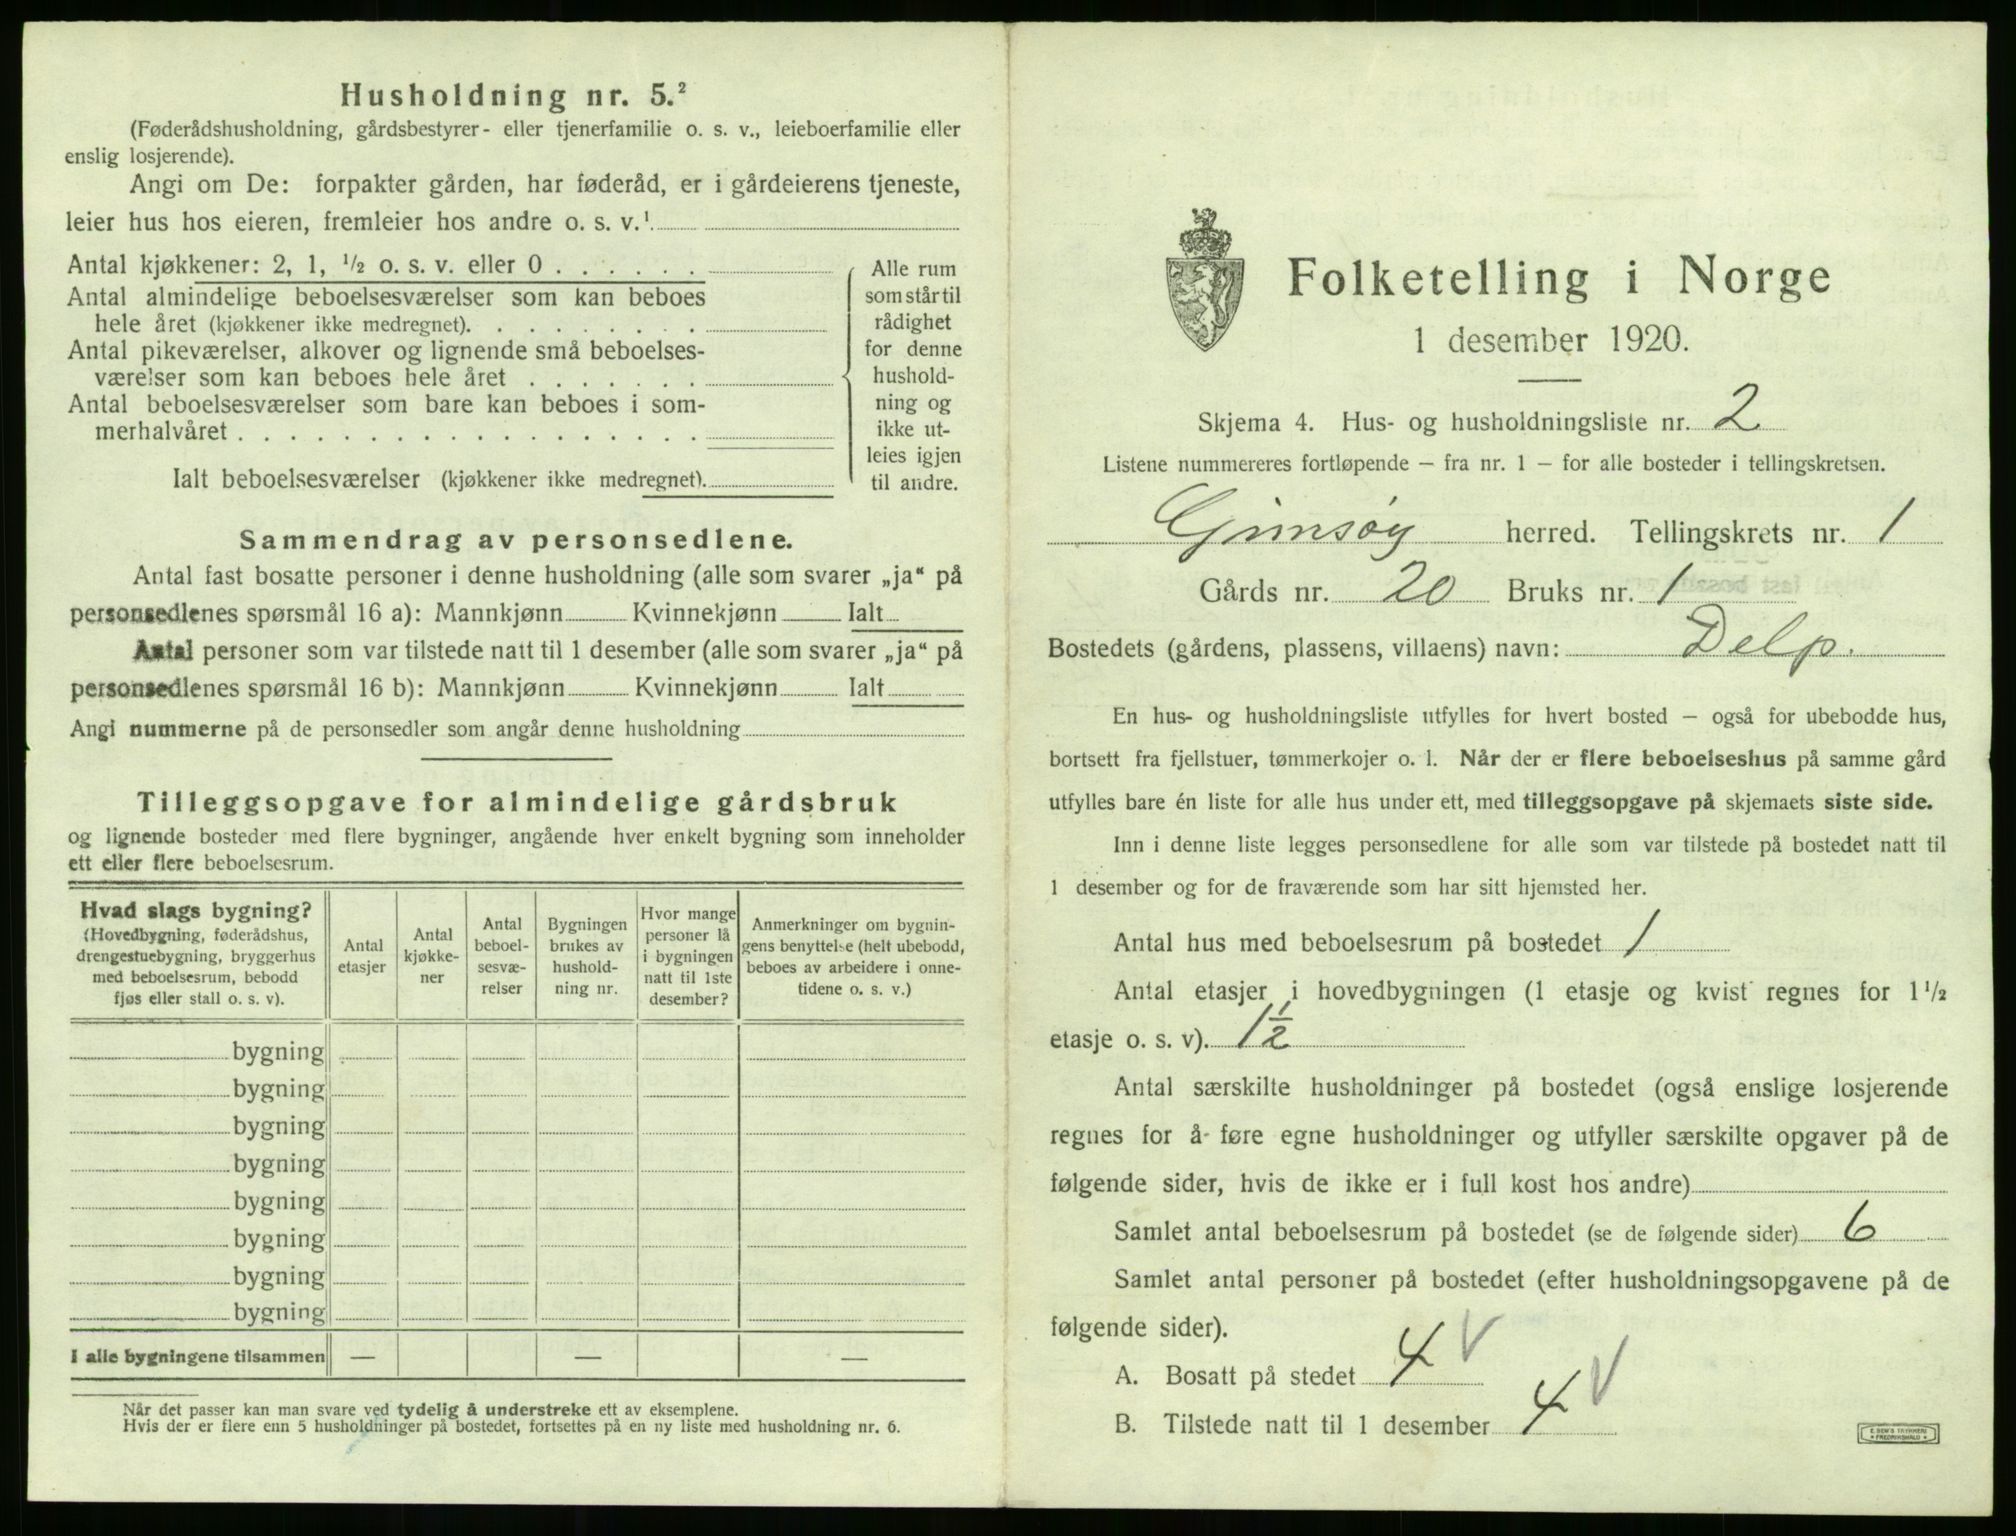 Husholdning nr. 5.²
(Føderådshusholdning, gårdsbestyrer- eller tjenerfamilie o. s. v., leieboerfamilie eller
enslig losjerende).
Angi om De: forpakter gården, har føderåd, er i gårdeierens tjeneste,
leier hus hos eieren, fremleier hos andre o. s. v.¹
Antal kjøkkener: 2, 1, ½ o. s. v. eller 0 . . . . . .
Antal almindelige beboelsesværelser som kan beboes
hele året (kjøkkener ikke medregnet). . . . . . . . .
Antal pikeværelser, alkover og lignende små beboelses-
værelser som kan beboes hele året . . . . . . .
Antal beboelsesværelser som bare kan beboes i som-
merhalvåret . . . . . . . . . . . . . . . . . .
Ialt beboelsesværelser (kjøkkener ikke medregnet).
Alle rum
som står til
rådighet
for denne
hushold-
ning og
ikke ut-
leies igjen
til andre.
Sammendrag av personsedlene.
Antal fast bosatte personer i denne husholdning (alle som svarer „ja“ på
personsedlenes spørsmål 16 a): Mannkjønn Kvinnekjønn Ialt
Antal personer som var tilstede natt til 1 desember (alle som svarer „ja“ på
personsedlenes spørsmål 16 b): Mannkjønn Kvinnekjønn Ialt
Angi nummerne på de personsedler som angår denne husholdning
Tilleggsopgave for almindelige gårdsbruk
og lignende bosteder med flere bygninger, angående hver enkelt bygning som inneholder
ett eller flere beboelsesrum.
Hvad slags bygning?
(Hovedbygning, føderådshus,
drengestuebygning, bryggerhus
med beboelsesrum, bebodd
fjøs eller stall o. s. v).
Antal
etasjer
Antal
kjøkke-
ner
Antal
beboel-
sesvæ-
relser
Bygningen
brukes av
hushold-
ning nr.
Hvor mange
personer lå
i bygningen
natt til 1ste
desember?
Anmerkninger om bygnin-
gens benyttelse (helt ubebodd,
beboes av arbeidere i onne-
tidene o. s. v.)
bygning
bygning
bygning
bygning
bygning
bygning
bygning
bygning
I alle bygningene tilsammen — — —
Når det passer kan man svare ved tydelig å understreke ett av eksemplene.
Hvis der er flere enn 5 husholdninger på bostedet, fortsettes på en ny liste med husholdning nr. 6.
Folketelling i Norge
1 desember 1920.
Skjema 4. Hus- og husholdningsliste nr. 2
Listene nummereres fortløpende – fra nr. 1 – for alle bosteder i tellingskretsen.
Gimsøy herred. Tellingskrets nr. 1
Gårds nr. 20 Bruks nr. 1
Bostedets (gårdens, plassens, villaens) navn: Delp.
En hus- og husholdningsliste utfylles for hvert bosted – også for ubebodde hus,
bortsett fra fjellstuer, tømmerkojer o. l. Når der er flere beboelseshus på samme gård
utfylles bare én liste for alle hus under ett, med tilleggsopgave på skjemaets siste side.
Inn i denne liste legges personsedlene for alle som var tilstede på bostedet natt til
1 desember og for de fraværende som har sitt hjemsted her.
Antal hus med beboelsesrum på bostedet 1
Antal etasjer i hovedbygningen (1 etasje og kvist regnes for 1½
etasje o. s. v). 1½
Antal særskilte husholdninger på bostedet (også enslige losjerende
regnes for å føre egne husholdninger og utfyller særskilte opgaver på de
følgende sider, hvis de ikke er i full kost hos andre)
Samlet antal beboelsesrum på bostedet (se de følgende sider) 6
Samlet antal personer på bostedet (efter husholdningsopgavene på de
følgende sider).
A. Bosatt på stedet 4 V
B. Tilstede natt til 1 desember 4 V
E. SEM'S TRYKKERI
FREDRIKSHALD